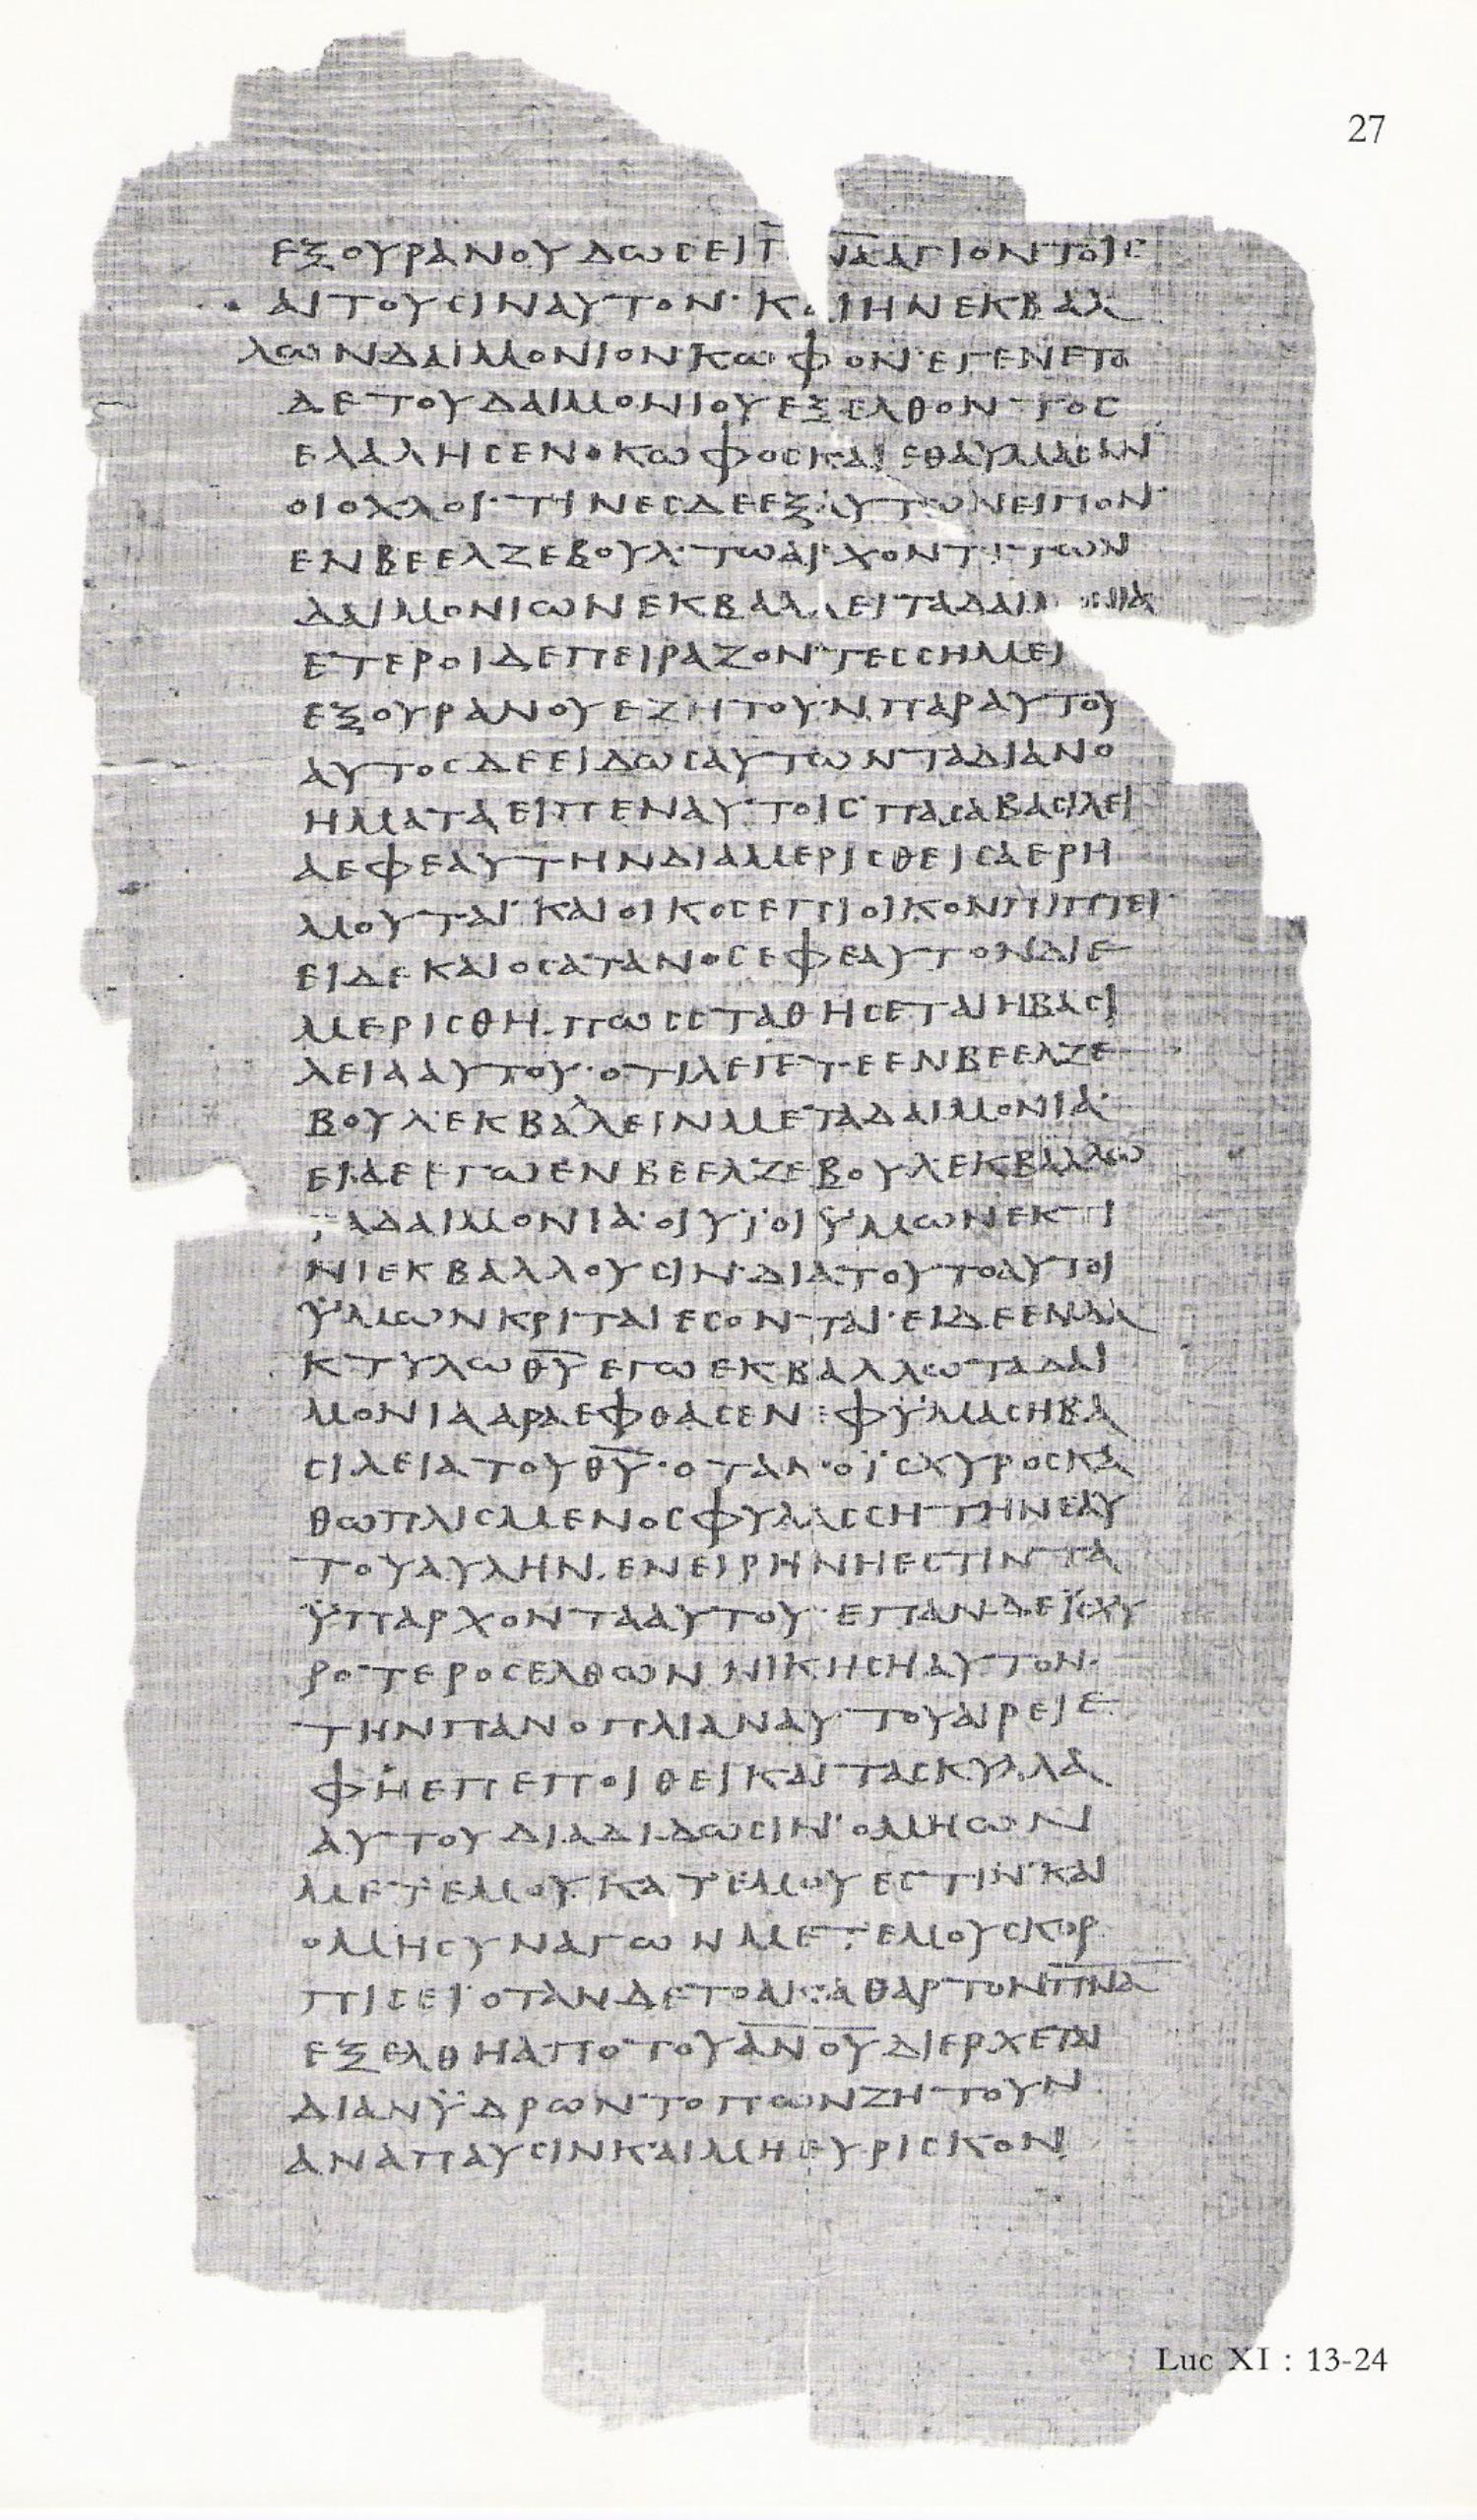 27
ΕΞΟΥΡΑΝΟΥΔΩCΕΙ Π̅Ν̅Α̅ΑΓΙΟΝΤΟΙC
ΑΙΤΟΥCΙΝΑΥΤΟΝ· ΚΑΙΗΝΕΚΒΑΛ
ΛΩΝΔΑΙΜΟΝΙΟΝΚΩΦΟΝ·ΕΓΕΝΕΤΟ
ΔΕΤΟΥΔΑΙΜΟΝΙΟΥΕΞΕΛΘΟΝΤΟC
ΕΛΑΛΗCΕΝΟΚΩΦΟCΚΑΙΕΘΑΥΜΑCΑΝ
ΟΙΟΧΛΟΙ· ΤΙΝΕCΔΕΕΞΑΥΤΩΝΕΙΠΟΝ·
ΕΝΒΕΕΛΖΕΒΟΥΛ·ΤΩΑΡΧΟΝΤΙΤΩΝ
ΔΑΙΜΟΝΙΩΝΕΚΒΑΛΛΕΙΤΑΔΑΙΜΟΝΙΑ
ΕΤΕΡΟΙΔΕΠΕΙΡΑΖΟΝΤΕCCΗΜΕΙ
ΕΞΟΥΡΑΝΟΥΕΖΗΤΟΥΝΠΑΡΑΥΤΟΥ
ΑΥΤΟCΔΕΕΙΔΩCΑΥΤΩΝΤΑΔΙΑΝΟ
ΗΜΑΤΑΕΙΠΕΝΑΥΤΟΙC· ΠΑCΑΒΑCΙΛΕΙ
ΑΕΦΕΑΥΤΗΝΔΙΑΜΕΡΙCΘΕΙCΑΕΡΗ
ΜΟΥΤΑΙ· ΚΑΙΟΙΚΟCΕΠΙΟΙΚΟΝΠΙΠΤΕΙ·
ΕΙΔΕΚΑΙΟCΑΤΑΝΟCΕΦΕΑΥΤΟΝΔΙΕ
ΜΕΡΙCΘΗ·ΠΩCCΤΑΘΗCΕΤΑΙΗΒΑCΙ
ΛΕΙΑΑΥΤΟΥ·ΟΤΙΛΕΓΕΤΕΕΝΒΕΕΛΖΕ
ΒΟΥΛΕΚΒΑ`Λ´ΛΕΙΝΜΕΤΑΔΑΙΜΟΝΙΑ·
ΕΙΔΕΕΓΩΕΝΒΕΕΛΖΕΒΟΥΛΕΚΒΑΛΛΩ
ΤΑΔΑΙΜΟΝΙΑ·ΟΙΥΪΟΙΫΜΩΝΕΚΤΙ
ΝΙΕΚΒΑΛΛΟΥCΙΝ·ΔΙΑΤΟΥΤΟΑΥΤΟΙ
ΫΜΩΝΚΡΙΤΑΙΕCΟΝΤΑΙ·ΕΙΔΕΕΝΔΑ
ΚΤΥΛΩΘ̅Υ̅ΕΓΩΕΚΒΑΛΛΩΤΑΔΑΙ
ΜΟΝΙΑΑΡΑΕΦΘΑCΕΝΕΦΫΜΑCΗΒΑ
CΙΛΕΙΑΤΟΥΘ̅Υ̅·ΟΤΑΝΟΪCΧΥΡΟCΚΑ
ΘΩΠΛΙCΜΕΝΟCΦΥΛΑCCΗΤΗΝΕΑΥ
ΤΟΥΑΥΛΗΝ·ΕΝΕΙΡΗΝΗΕCΤΙΝΤΑ
ΫΠΑΡΧΟΝΤΑΑΥΤΟΥ· ΕΠΑΝΔΕΪCΧΥ
ΡΟΤΕΡΟCΕΛΘΩΝΝΙΚΗCΗΑΥΤΟΝ·
ΤΗΝΠΑΝΟΠΛΙΑΝΑΥΤΟΥΑΙΡΕΙΕ
ΦΗΕΠΕΠΟΙΘΕΙΚΑΙΤΑCΚΥΛΛΑ
ΑΥΤΟΥΔΙΑΔΙΔΩCΙΝ·ΟΜΗΩΝ
ΜΕΤΕΜΟΥ·ΚΑΤΕΜΟΥΕCΤΙΝΚΑΙ
ΟΜΗCΥΝΑΓΩΝΜΕΤΕΜΟΥCΚΟΡ
ΠΙCΕΙ·ΟΤΑΝΔΕΤΟΑΚΑΘΑΡΤΟΝΠ̅Ν̅Α̅
ΕΞΕΛΘΗΑΠΟΤΟΥΑ̅Ν̅Ο̅Υ̅ΔΙΕΡΧΕΤΑΙ
ΔΙΑΝΫΔΡΩΝΤΟΠΩΝΖΗΤΟΥΝ
ΑΝΑΠΑΥCΙΝΚΑΙΜΗΕΥΡΙCΚΟΝ
Luc XI : 13-24